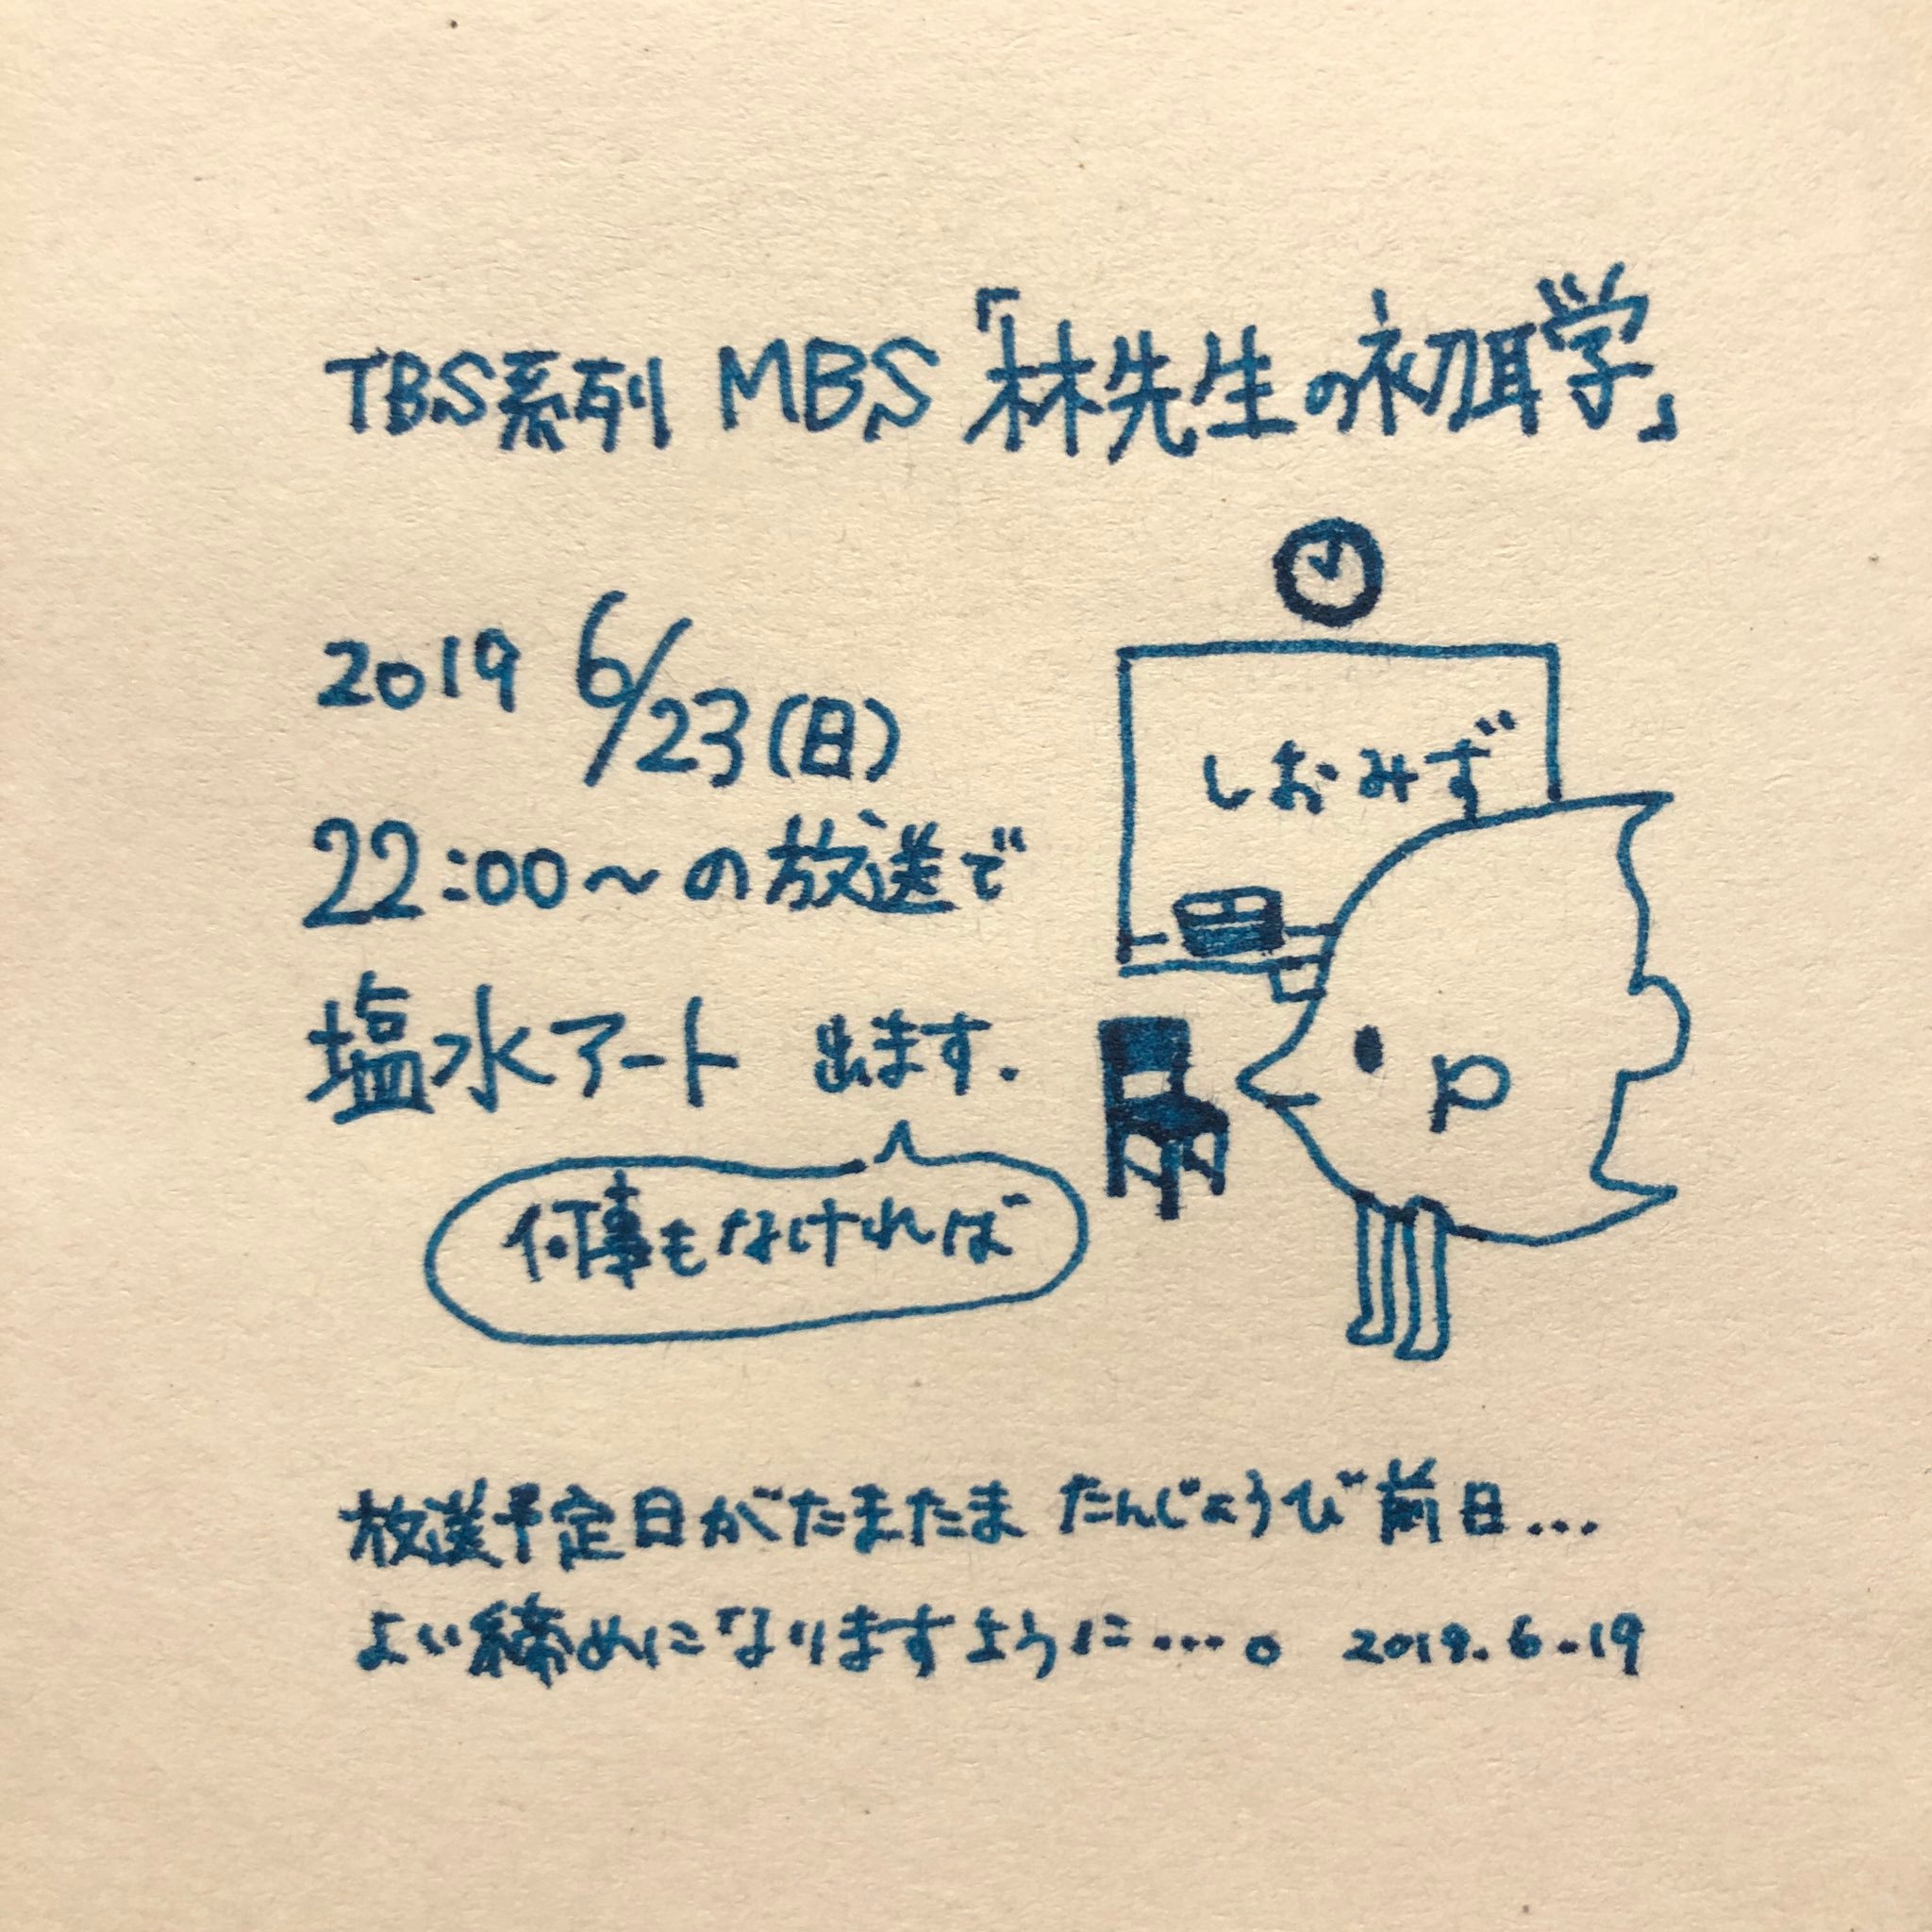 TBS系列 MBS「林先生の初耳学」
2019 6/23(日)
22:00〜の放送で
塩水アート 出ます.
何事もなければ
しおみず
放送予定日がたまたま たんじょうび前日...
よい締めになりますように...。 2019.6.19